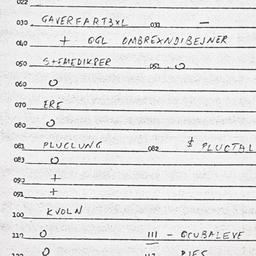 022
030 GAVERFARTBXL 031 —
040 + OGL OMBREXNDIBEJNER
050 S+EMEDIKPER 052 . O
060 O
070 ERE
080 O
081 PLUCLUNG 082 $ PLUCTAL
083 O
092 +
051 +
100 KVOLN
110 O 111 - OCUBALEVE
O PIES